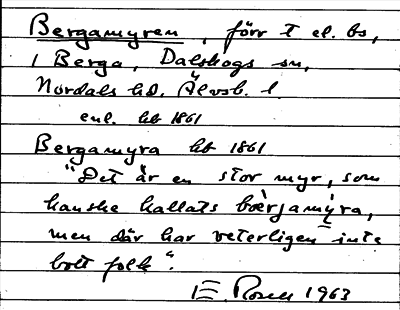 Bergamyren, förr t el. bs,
i Berga, Dalskogs sn,
Nordals hd. Älvsb. l.
enl. hb 1861
Bergamyra hb 1861
"Det är en stor myr, som
kanske kallats bœ̀rjamỳra,
men där har veterligen inte
bott folk".
Rosell 1963